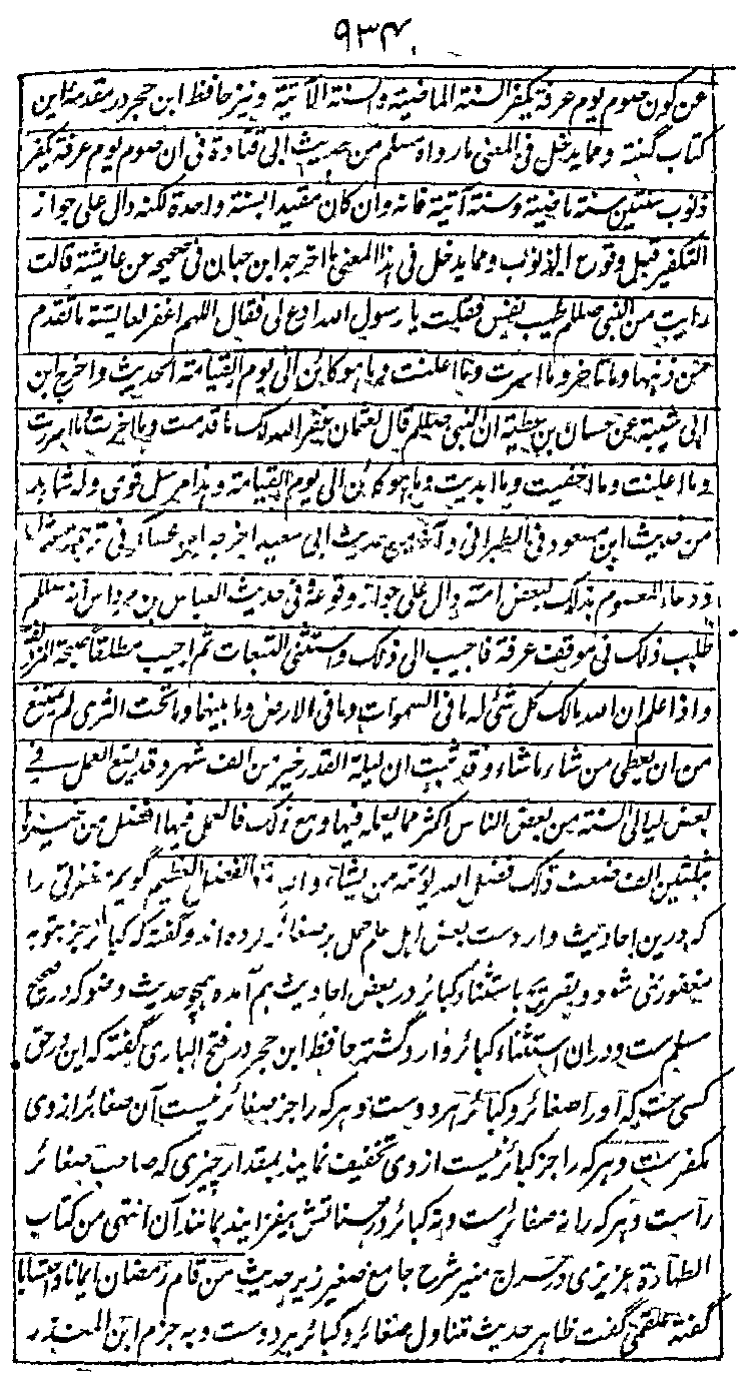 ۹۳۴
عن کون صوم یوم عرفة یکفر السنة الماضیة والسنة الآتیة ونیز حافظ ابن حجر در مقدمهٔ این
کتاب گفته ومما یدخل فی المعنی ما رواه مسلم من حدیث ابی قتادة فی ان صوم یوم عرفة یکفر
ذنوب سنتین سنة ماضیة وسنة آتیة فانه وان کان مقیدا بسنة واحدة لکنه دال علی جواز
التکفیر قبل وقوع الذنوب ومما یدخل فی هذا المعنی ما اخرجه ابن حبان فی صحیحه عن عایشة قالت
رایت من النبی صللم طیب نفس فقلت یا رسول الله ادع لی فقال اللهم اغفر لعایشة ما تقدم
من ذنبها وما تاخر وما اسرت وما اعلنت وما هو کائن الی یوم القیامة الحدیث واخرج ابن
ابی شیبة عن حسان بن عطیة ان النبی صللم قال لعثمان غفر الله لک ما قدمت وما اخرت وما اسررت
وما اعلنت وما اخفیت وما ابدیت وما هو کائن الی یوم القیامة وهذا مرسل قوی وله شاهد
من حدیث ابن مسعود فی الطبرانی وآخر من حدیث ابی سعید اخرجه ابن عساکر فی ترجمة
ودعاء المعصوم بذلک لبعض امته دال علی جواز وقوعه وفی حدیث العباس بن مرداس انه صللم
طلب ذلک فی موقف عرفة فاجیب الی ذلک واستثنی التبعات ثم اجیب مطلقا صبیحة المزدلفة
واذا علم ان الله مالک کل شئ له ما فی السموات وما فی الارض وما بینهما وما تحت الثری لم یمتنع
من ان یعطی من شاء ما شاء وقد ثبت ان لیلة القدر خیر من الف شهر وقد یقع العمل فی
بعض لیالی السنة من بعض الناس اکثر مما یعمله فیها ومع ذلک فالعمل فیها افضل من غیرها
بثلثین الف ضعف ذلک فضل الله یؤتیه من یشاء والله ذو الفضل العظیم گویم غفرانی را
که درین احادیث وارد ست بعض اهل علم حمل بر صغائر کرده اند وگفته که کبائر جز بتوبه
مغفور نمی شود وتصریح باستثناء کبائر در بعض احادیث هم آمده همچو حدیث وضو که در صحیح
مسلم ست ودران استثناء کبائر وارد گشته حافظ ابن حجر در فتح الباری گفته که این در حق
کسی ست که او را صغائر وکبائر هر دو ست وهر که را جز صغائر نیست آن صغائر از وی
مکفر ست وهر که را جز کبائر نیست از وی تخفیف نمایند بمقدار چیزی که صاحب صغائر
راست وهر که را نه صغائر ست ونه کبائر در حسناتش بیفزایند بمانند آن انتهی من کتاب
الطهارة عزیزی در سراج منیر شرح جامع صغیر زیر حدیث من قام رمضان ایمانا واحتسابا
گفته علقمی گفت ظاهر حدیث تناول صغائر وکبائر هر دو ست وبه جزم ابن المنذر